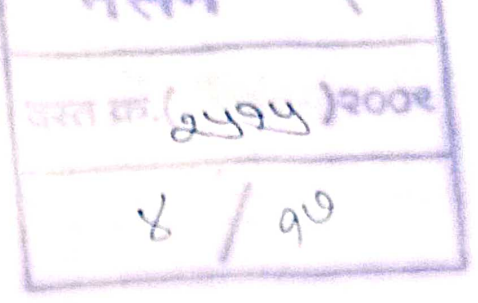 दस्त क्र.(२५१५)२००२
४ / १७